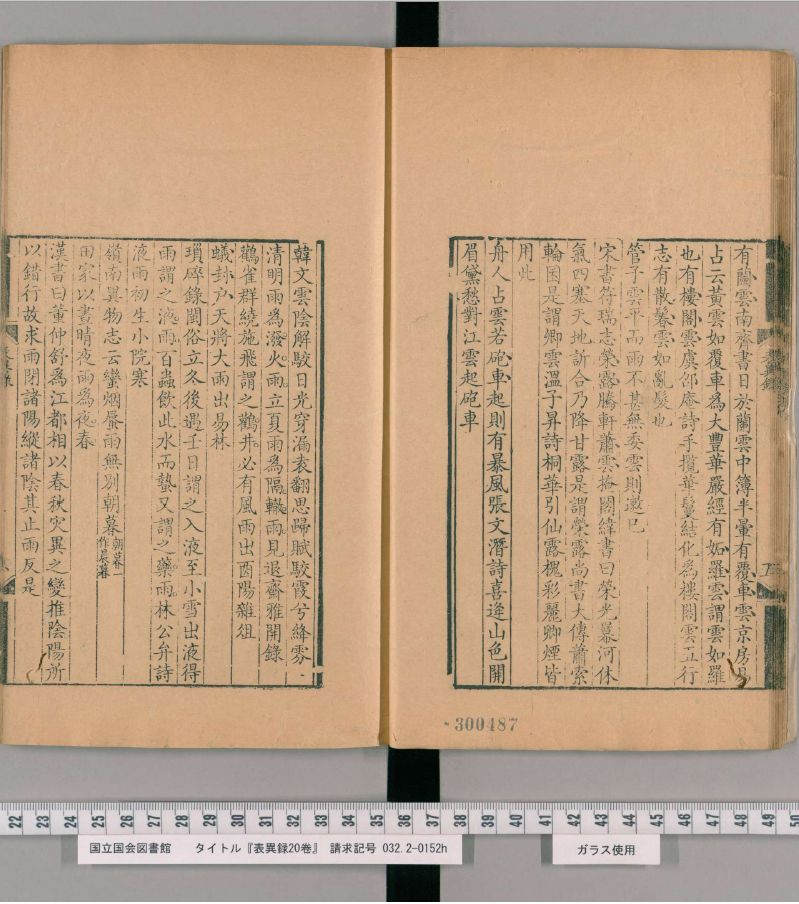 有蘭雲南齊書日於蘭雲中簿半暈有覆車雲京房易
占云黃雲如覆車為大豐華嚴經有妬羅雲謂雲如羅
也有樓閣雲虞邵庵詩手攬華鬘結化為樓閣雲五行
志有散鬊雲如亂髮也
管子雲平而雨不甚無委雲則遬已
宋書符瑞志榮露騰軒蕭雲掩閣緯書曰榮光冪河休
氣四塞天地訢合乃降甘露是謂榮露尚書大傳蕭索
輪囷是謂卿雲溫子昇詩桐華引仙露槐彩麗卿煙皆
用此
舟人占雲若砲車起則有暴風張文潛詩喜逢山色開
眉黛愁對江雲起砲車
韓文雲陰解駮日光穿漏袁翻思歸賦駮霞兮絳雰
清明雨為潑火雨立夏雨為隔轍雨見退齋雅聞錄
鸛雀群繞旋飛謂之鸛井必有風雨出酉陽雜俎
蟻封户天將大雨出易林
瑣碎錄閩俗立冬後遇壬日謂之入液至小雪出液得
雨謂之液雨百蟲飲此水而蟄又謂之藥雨林公弁詩
液雨初生小院寒
嶺南異物志云蠻烟蜃雨無別朝暮朝暮一作晨暮
田家以晝晴夜雨為夜春
漢書曰董仲舒為江都相以春秋災異之變推陰陽所
以錯行故求雨閉諸陽縱諸陰其止雨反是
300487
22 23 24 25 26 27 28 29 30 31 32 33 34 35 36 37 38 39 40 41 42 43 44 45 46 47 48 49 50
国立国会図書館 タイトル『表異録20巻』 請求記号 032.2-0152h
ガラス使用